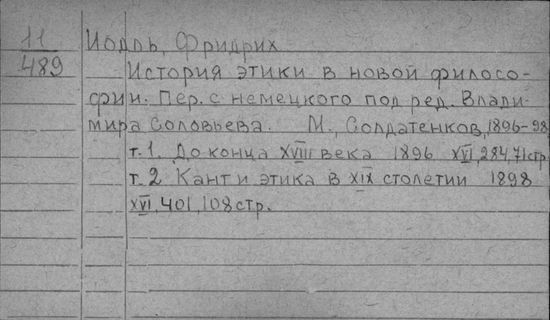 11
489
Иодль, Фридрих
История этики в новой филосо-
фии. Пер. с немецкого под ред. Влади-
мира Соловьева. М., Солдатенков, 1896-98
т. 1. До конца XVIII века 1896 XVI, 284, 71 стр.
т. 2 Кант и этика в XIX столетии 1898
XVI, 401, 108 стр.